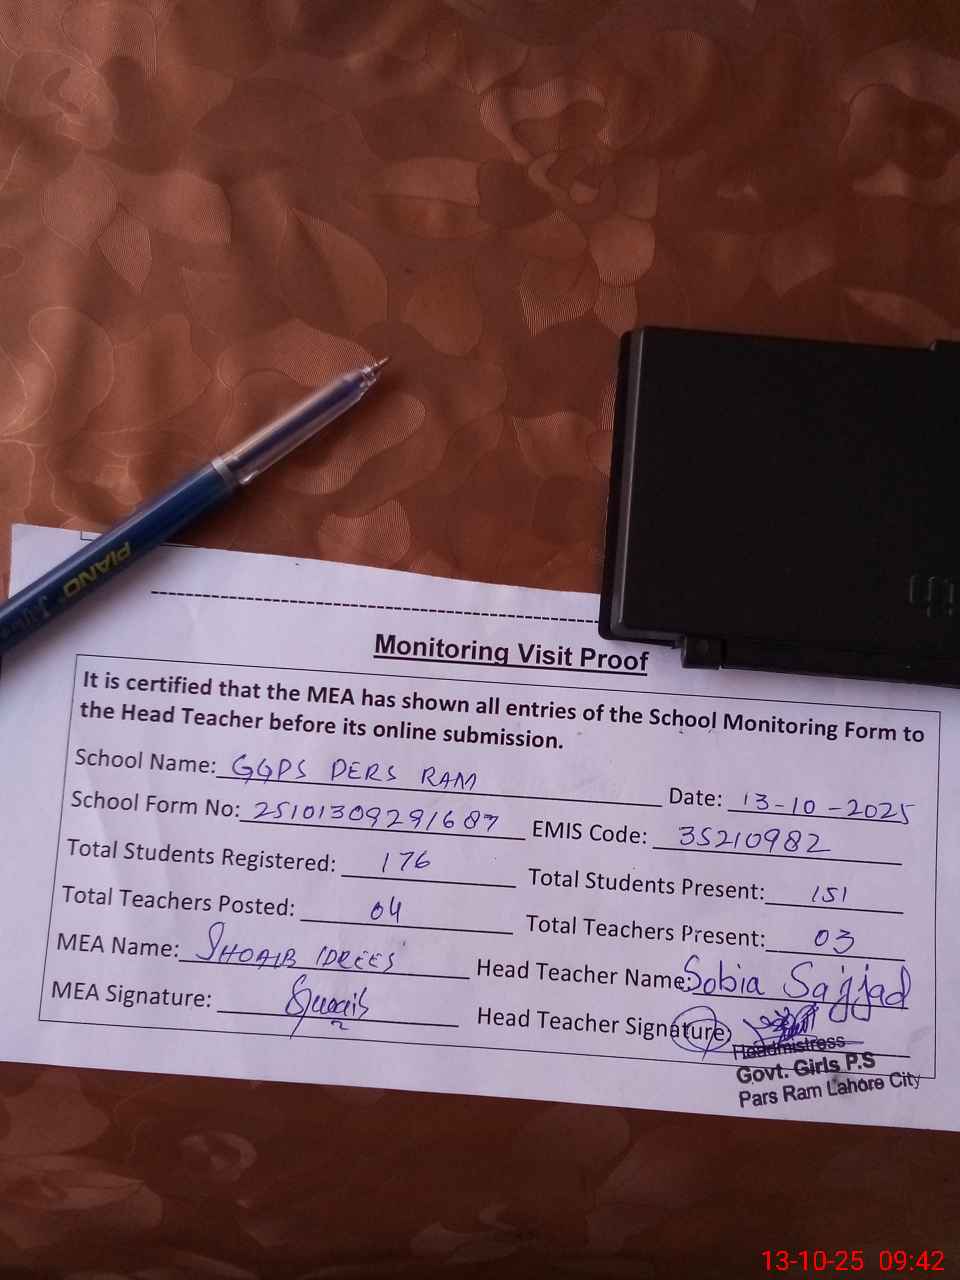 PIANO
Monitoring Visit Proof
It is certified that the MEA has shown all entries of the School Monitoring Form to
the Head Teacher before its online submission.
School Name: GGPS PERS RAM Date: 13-10-2025
School Form No: 25101309291687 EMIS Code: 35210982
Total Students Registered: 176 Total Students Present: 151
Total Teachers Posted: 04 Total Teachers Present: 03
MEA Name: SHOAIB IDREES Head Teacher Name: Sobia Sajjad
MEA Signature: Head Teacher Signature
Headmistress
Govt. Girls P.S
Pars Ram Lahore City
13-10-25 09:42